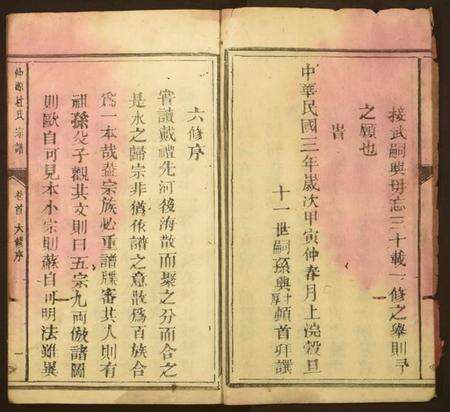 接武嗣興毋忘三十載一修之舉則予
之願也
旹
中華民國三年歲次甲寅仲春月上浣穀旦
十一世嗣孫興 頓首拜譔
六修序
嘗讀戴禮先河後海散而聚之分而合之
是水之歸宗非猶依譜之意散爲百族合
爲一本哉蓋宗族必重譜牒審其人則有
祖孫父子觀其文則曰五宗九兩倣諸圖
則歐自可見本小宗則蘇自可明法雖異
杜氏宗譜
卷首 六修序
一